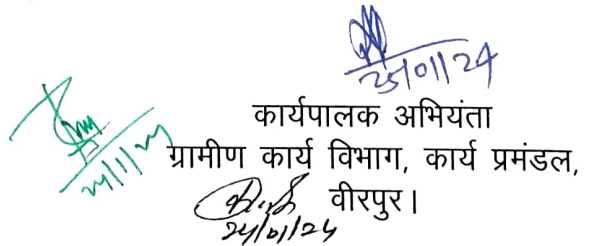 25/01/24
कार्यपालक अभियंता
ग्रामीण कार्य विभाग, कार्य प्रमंडल,
वीरपुर।
24/01/24